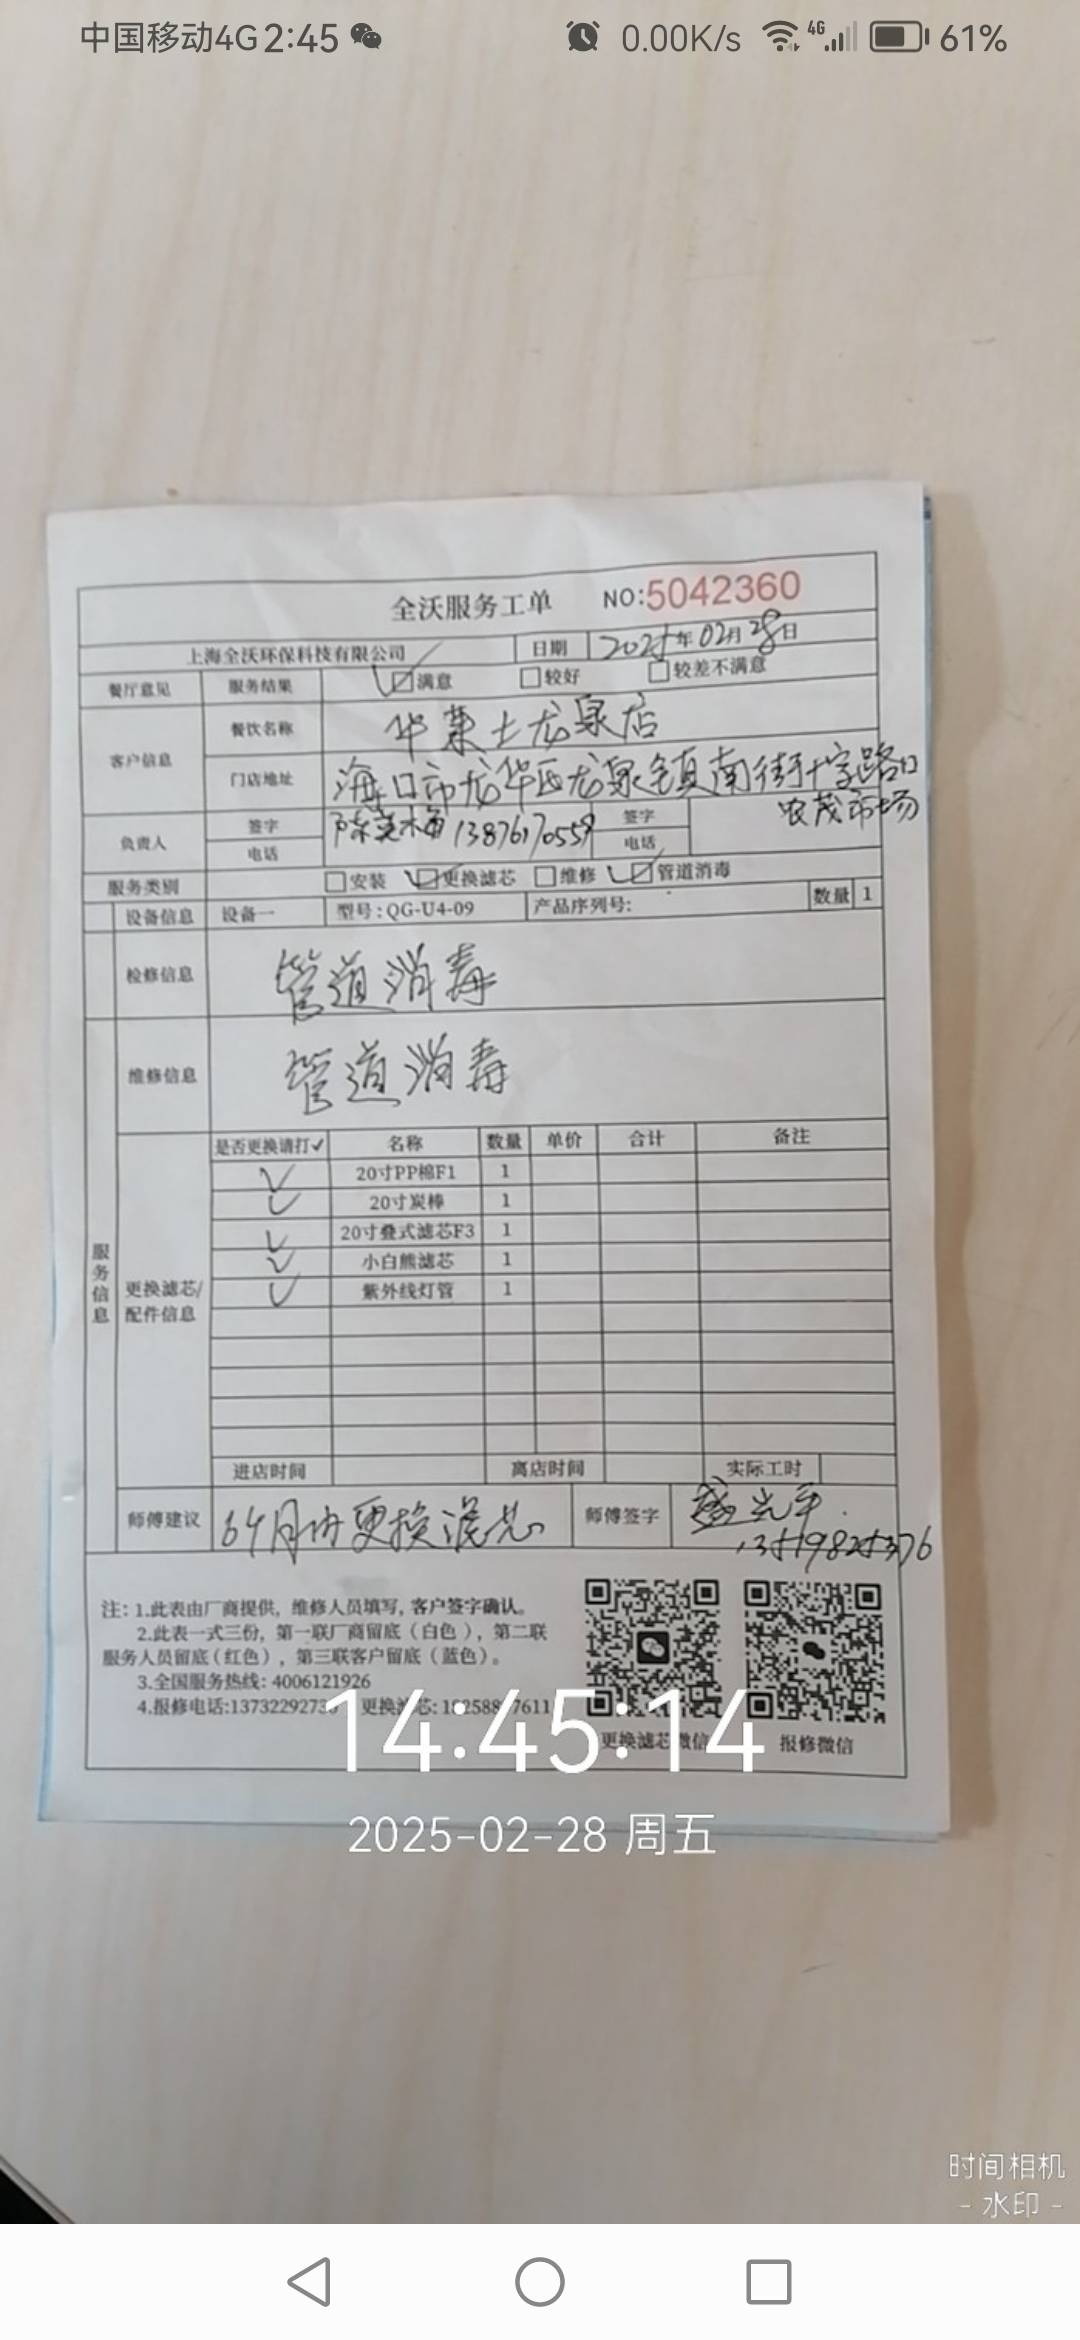 中国移动4G 2:45 0.00K/s 4G 61%
全沃服务工单 NO:5042360
上海全沃环保科技有限公司 日期 2025年02月28日
餐厅意见 服务结果 满意 较好 较差不满意
客户信息 餐饮名称 华莱士龙泉店
门店地址 海口市龙华区龙泉镇南街十字路口
农茂市场
负责人 签字 签字
电话 13876170559 电话
服务类别 安装 更换滤芯 维修 管道消毒
设备信息 设备一 型号:QG-U4-09 产品序列号: 数量 1
检修信息 管道消毒
维修信息 管道消毒
服务信息
更换滤芯/
配件信息
是否更换请打✓ 名称 数量 单价 合计 备注
✓ 20寸PP棉F1 1
✓ 20寸炭棒 1
✓ 20寸叠式滤芯F3 1
✓ 小白熊滤芯 1
✓ 紫外线灯管 1
进店时间 离店时间 实际工时
师傅建议 6个月内更换滤芯 师傅签字 盛光平
注: 1.此表由厂商提供, 维修人员填写, 客户签字确认。
2.此表一式三份, 第一联厂商留底 (白色), 第二联
服务人员留底 (红色), 第三联客户留底 (蓝色)。
3.全国服务热线: 4006121926
4.报修电话:
更换滤芯微信 报修微信
14:45:14
2025-02-28 周五
时间相机
- 水印 -